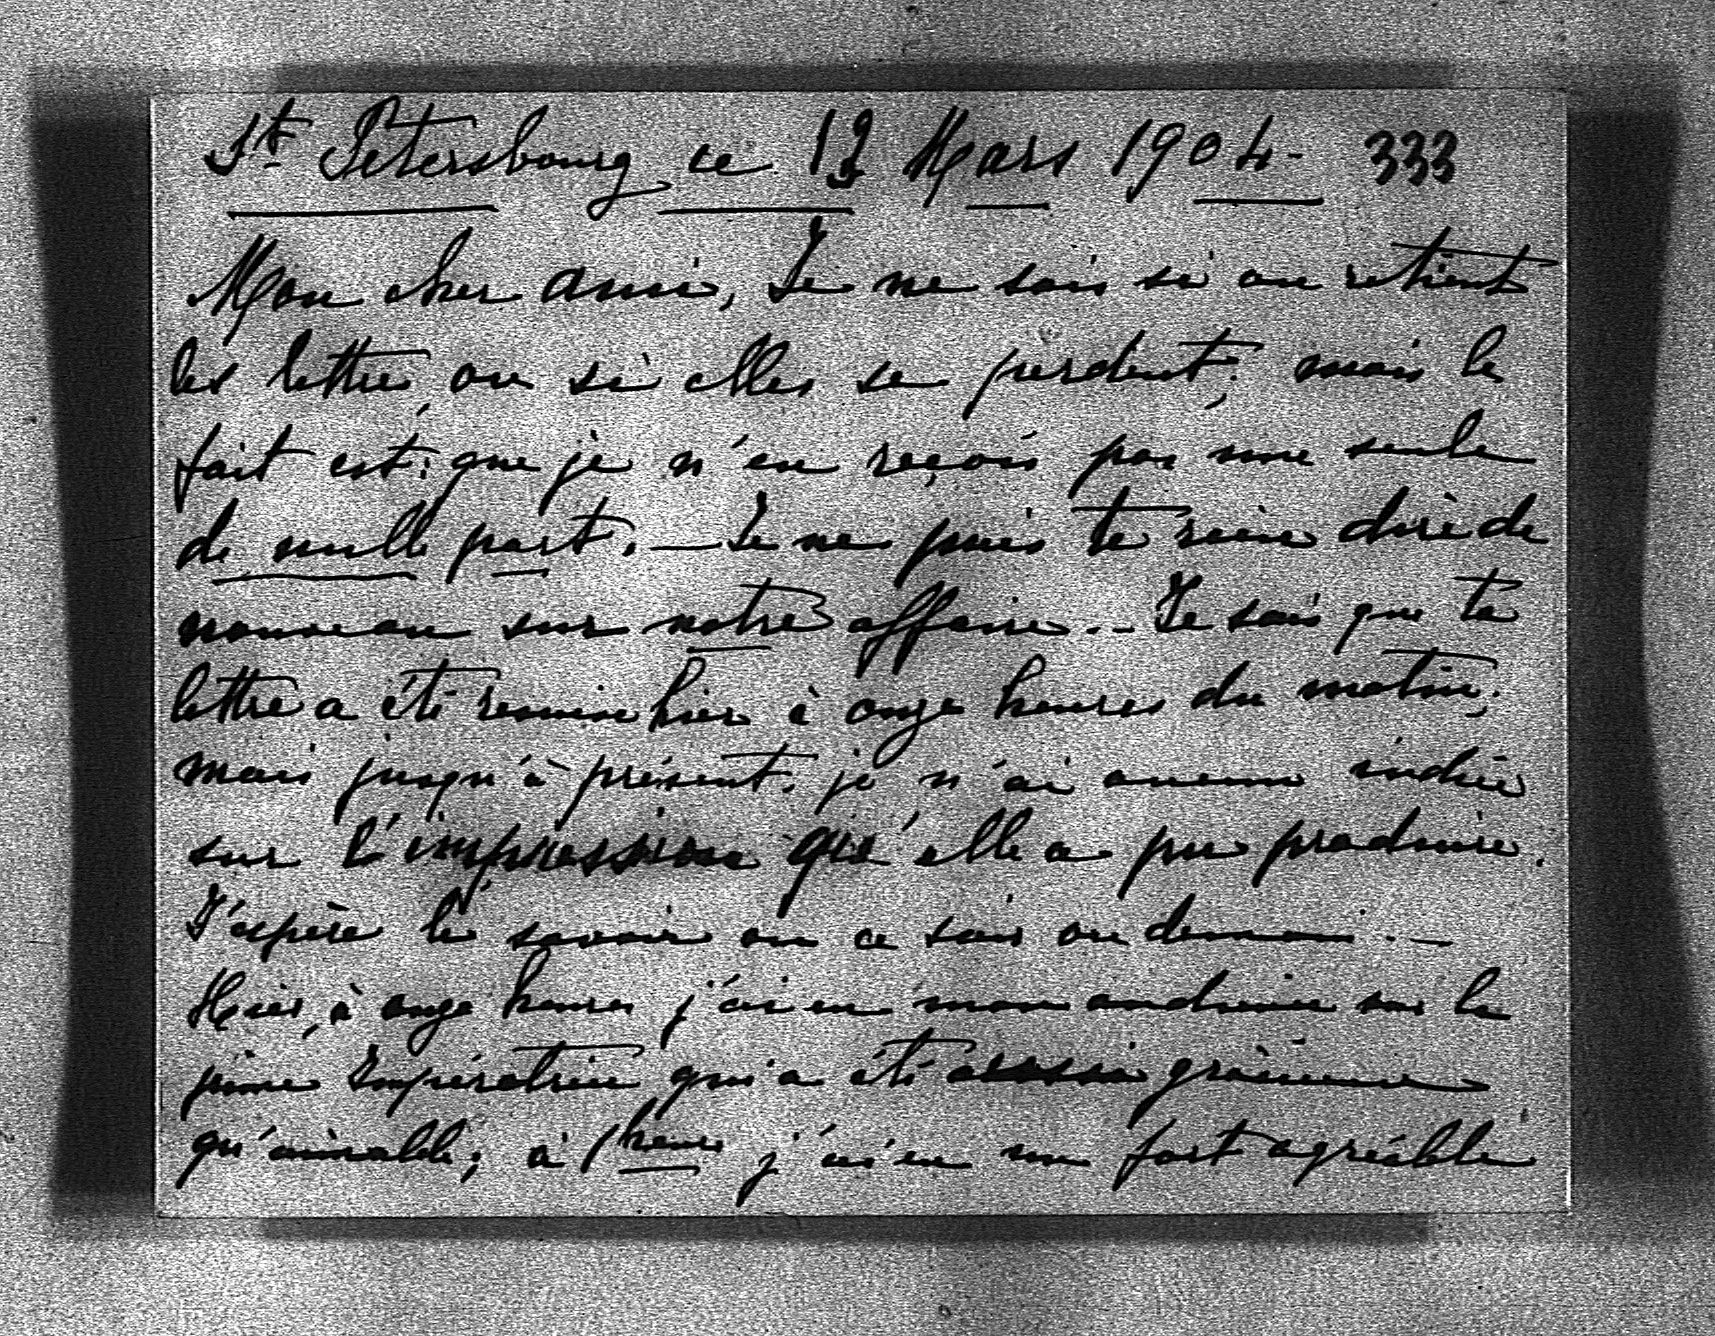 St Petersbourg ce 13 Mars 1904 - 333
Mon cher ami, Je ne sais si on retient
les lettres, ou si elles se perdent; mais le
fait est: que je n'en reçois pas une seule
de nulle part. — Je ne puis te rien dire de
nouveau sur notre affaire. - Je sais que ta
lettre a été remise hier à onze heures du matin;
mais jusqu'à présent, je n'ai aucun indice
sur l'impression qu'elle a pu produire.
J'espère le savoir ou ce soir ou demain. —
Hier, à onze heures j'ai eu mon audience la
jeune Impératrice qui a été aussi gracieuse
qu'aimable; à 1 heure j'ai eu un fort agréable